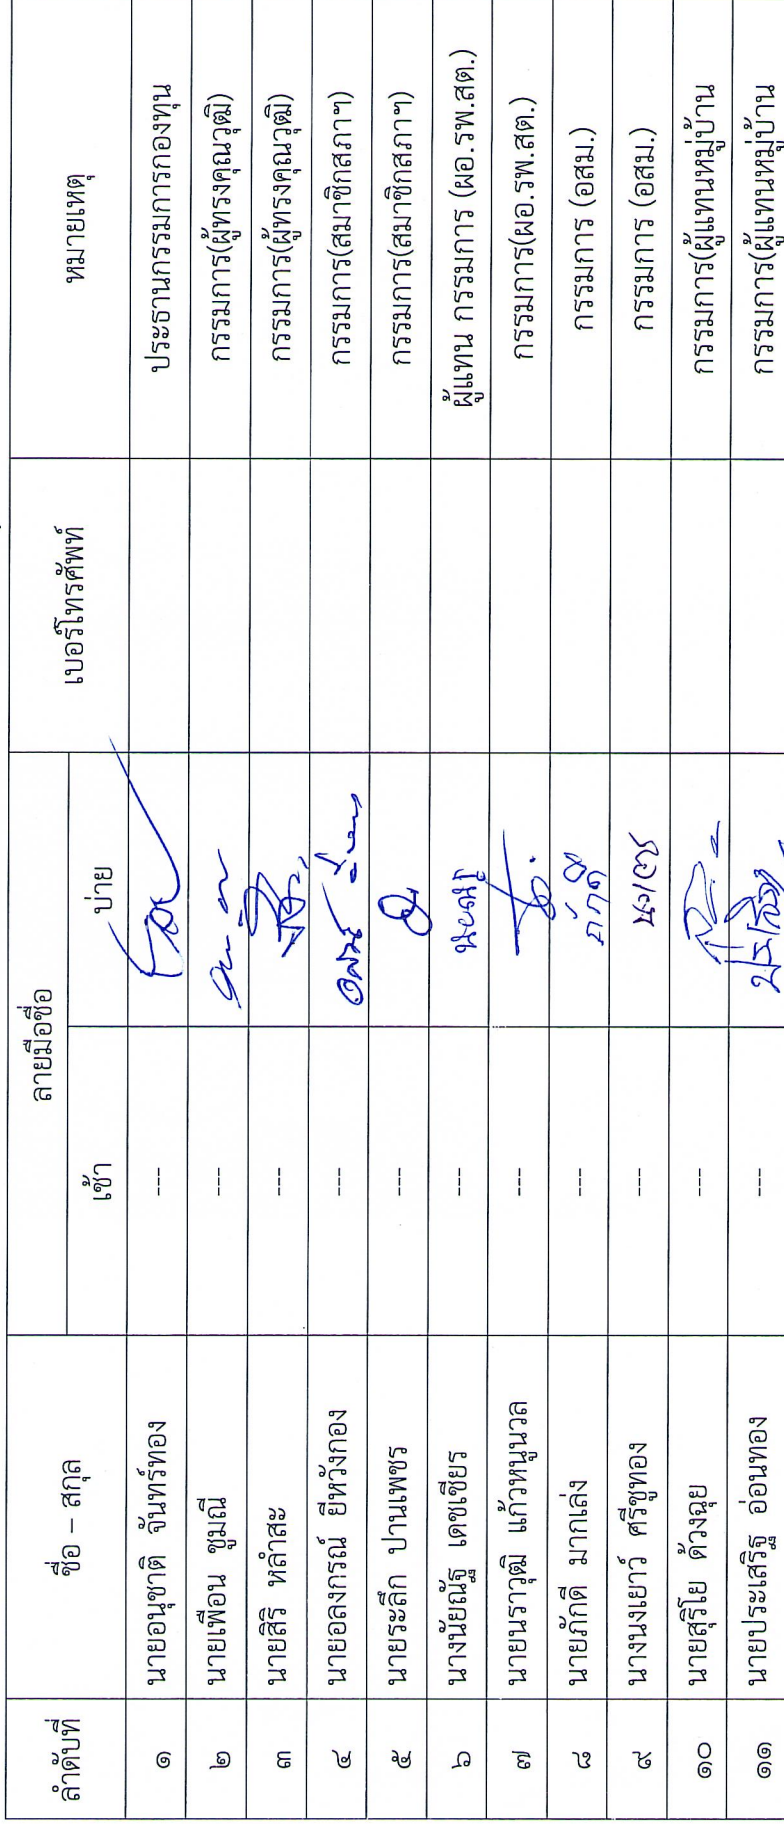 ลำดับที่ ชื่อ – สกุล ลายมือชื่อ เบอร์โทรศัพท์ หมายเหตุ
เช้า บ่าย
๑ นายอนุชาติ จันทร์ทอง --- ประธานกรรมการกองทุน
๒ นายเพือน ชูมณี --- กรรมการ(ผู้ทรงคุณวุฒิ)
๓ นายสิริ หลำสะ --- กรรมการ(ผู้ทรงคุณวุฒิ)
๔ นายอลงกรณ์ ยีหวังกอง --- กรรมการ(สมาชิกสภาฯ)
๕ นายระลึก ปานเพชร --- กรรมการ(สมาชิกสภาฯ)
๖ นางนัยณัฐ เดชเชียร --- ผู้แทน กรรมการ (ผอ.รพ.สต.)
๗ นายนราวุฒิ แก้วหนูนวล --- กรรมการ(ผอ.รพ.สต.)
๘ นายภักดี มากเล่ง --- ภักดี กรรมการ (อสม.)
๙ นางนงเยาว์ ศรีชูทอง --- กรรมการ (อสม.)
๑๐ นายสุริโย ด้วงฉุย --- กรรมการ(ผู้แทนหมู่บ้าน
๑๑ นายประเสริฐ อ่อนทอง --- กรรมการ(ผู้แทนหมู่บ้าน